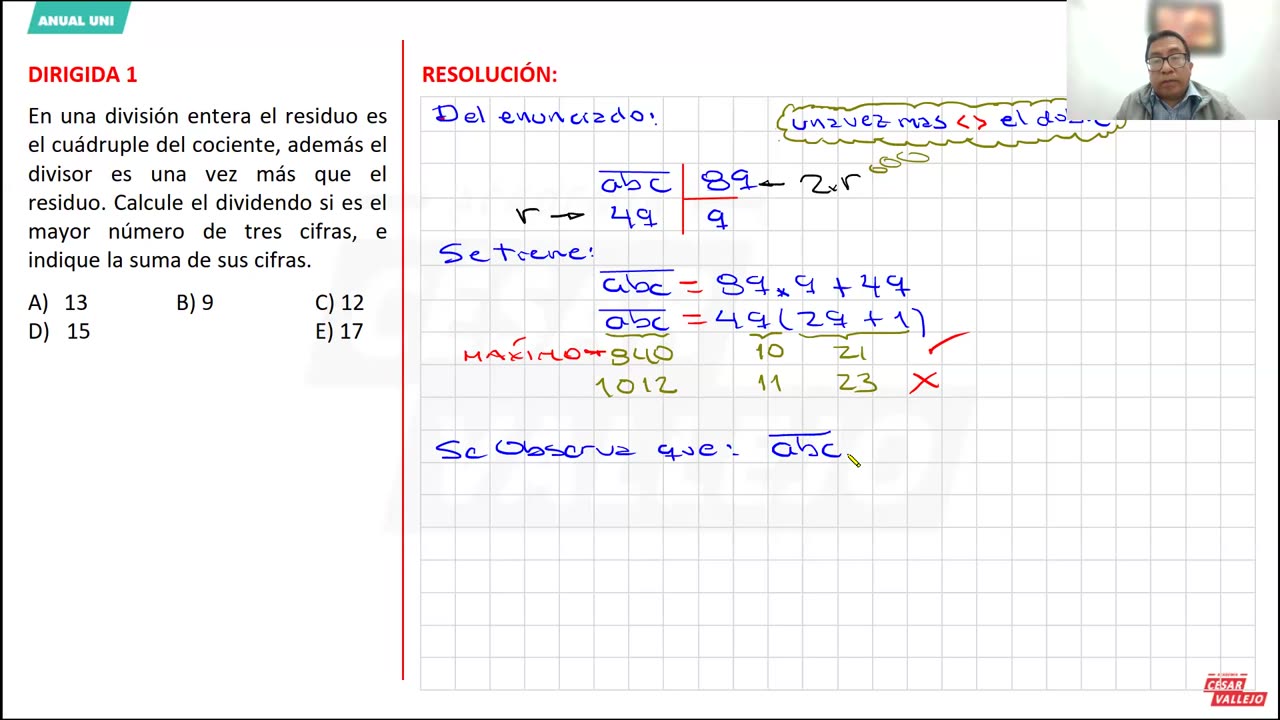 ANUAL UNI
DIRIGIDA 1
En una división entera el residuo es
el cuádruple del cociente, además el
divisor es una vez más que el
residuo. Calcule el dividendo si es el
mayor número de tres cifras, e
indique la suma de sus cifras.
A) 13 B) 9 C) 12
D) 15 E) 17
RESOLUCIÓN:
Del enunciado:
una vez mas <> el
abc 8q ← 2.r
r → 4q q
Se tiene:
abc = 8q x q + 4q
abc = 4q(2q + 1)
MAXÍMO → 840 10 21 ✓
1012 11 23 ✗
Se Observa que: abc
CÉSAR
VALLEJO